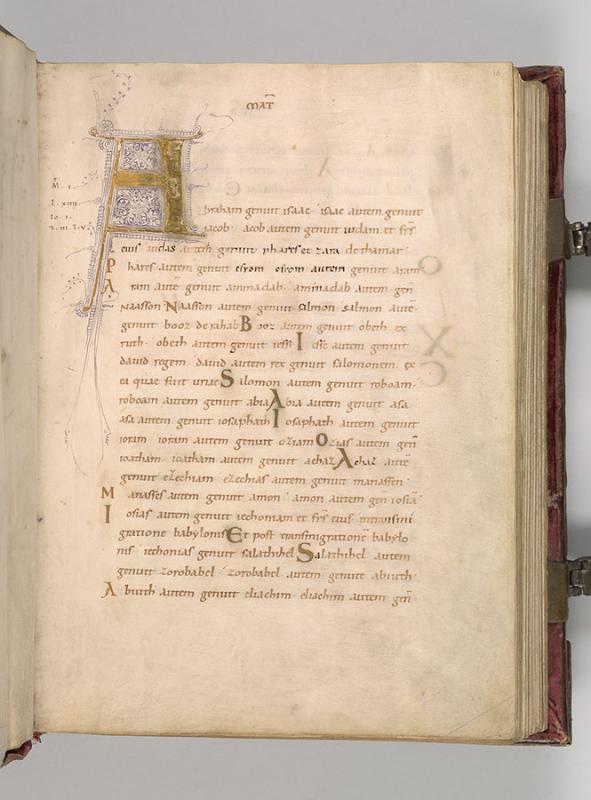 16
MAT̄
M. 1.
L. xiiii.
Io. 1.
Abraham genuit isaac · isaac autem genuit
iacob · iacob autem genuit iudam et frs̄
eius iudas autem genuit phares et zara de thamar
Phares autem genuit esrom esrom autem genuit aram
Aram autē genuit aminadab · aminadab autem gen̄
naasson Naasson autem genuit salmon salmon autē
genuit booz de rahab Booz autem genuit obeth ex
ruth · obeth autem genuit iesse Iesse autem genuit
david regem · david autem rex genuit salomonem · ex
ea quae fuit uriae Salomon autem genuit roboam ·
roboam autem genuit abia Abia autem genuit asa
asa autem genuit iosaphath Iosaphath autem genuit
ioram ioram autem genuit oziam Ozias autem gen̄
ioatham · ioatham autem genuit achaz Achaz autē
genuit ezechiam ezechias autem genuit manassen
Manasses autem genuit amon · amon autem gen̄ iosiā
Iosias autem genuit iechoniam et frs̄ eius in transmi
gratione babylonis Et post transmigrationē babylo
nis iechonias genuit salathihel Salathihel autem
genuit zorobabel · zorobabel autem genuit abiuth ·
Abiuth autem genuit eliachim · eliachim autem gen̄